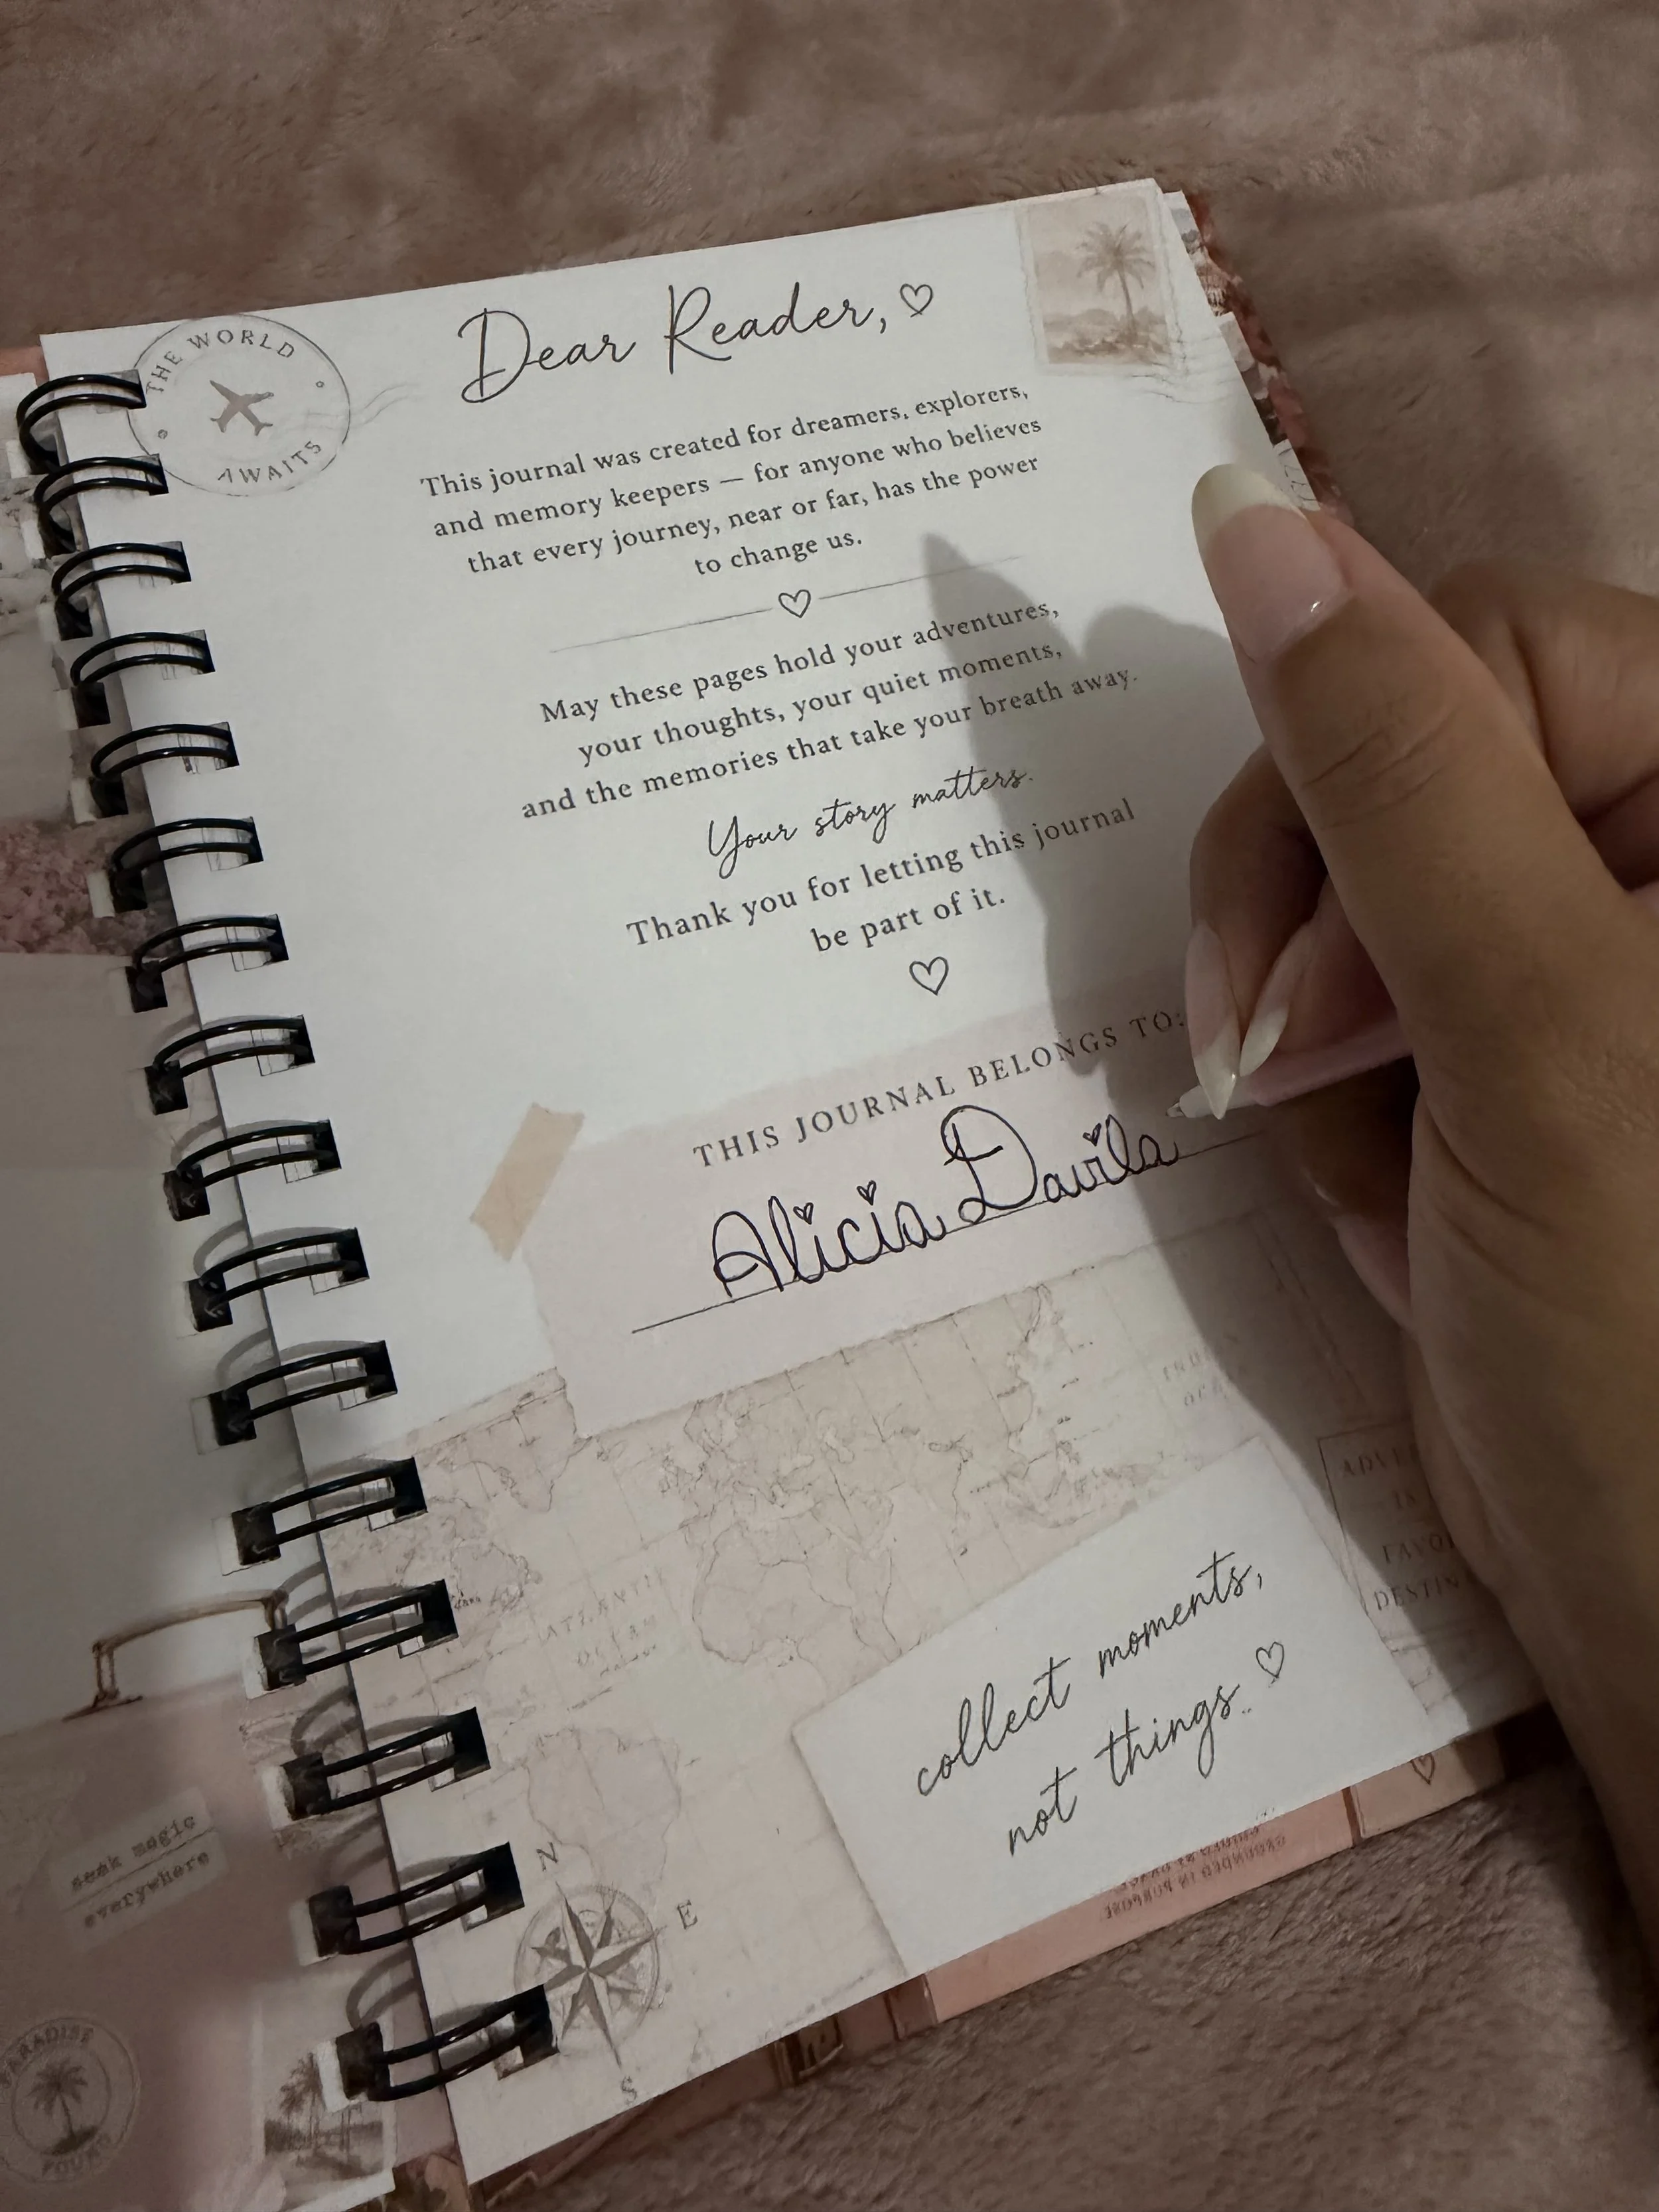 THE WORLD
AWAITS
Dear Reader,
This journal was created for dreamers, explorers,
and memory keepers — for anyone who believes
that every journey, near or far, has the power
to change us.
May these pages hold your adventures,
your thoughts, your quiet moments,
and the memories that take your breath away.
Your story matters.
Thank you for letting this journal
be part of it.
THIS JOURNAL BELONGS TO:
Alicia Davila
ATLANTIC
OCEAN
collect moments,
not things.
N
E
S
seek magic
everywhere
PARADISE